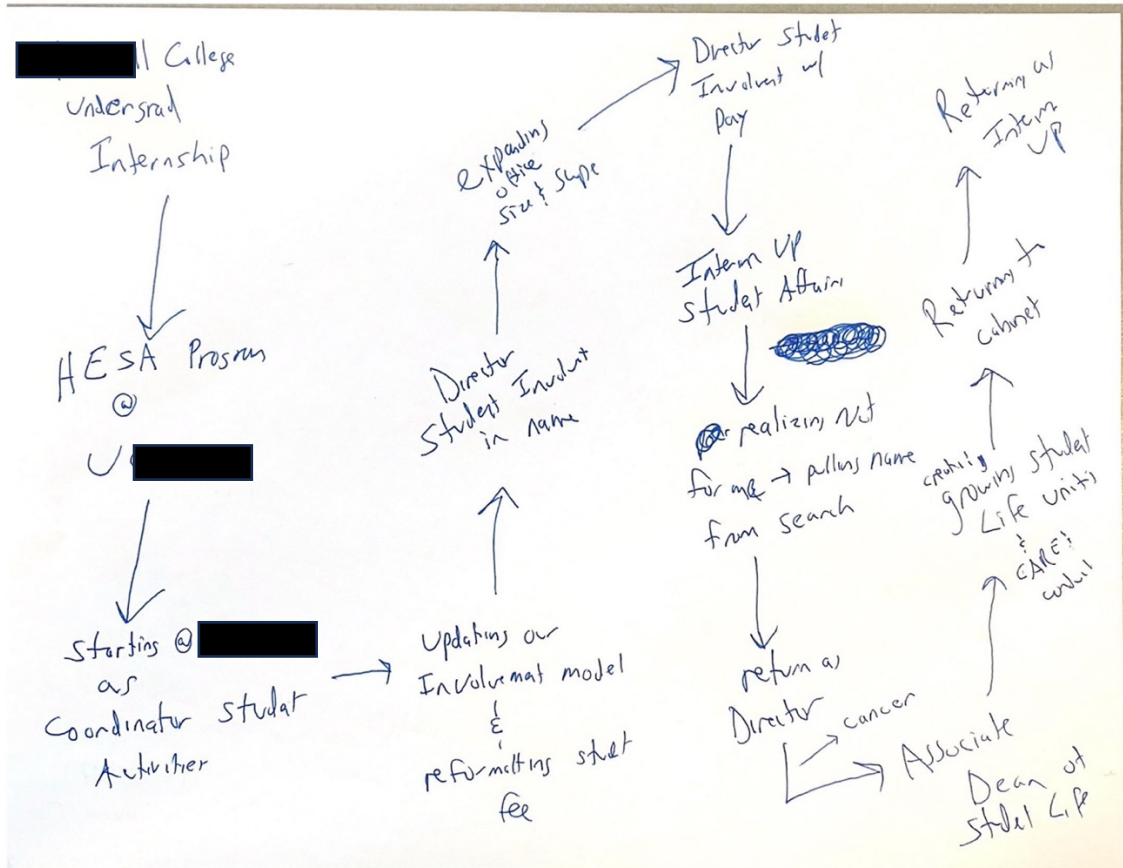 ll College
Undergrad
Internship
HESA Program
@
U
Starting @
as
Coordinator Studat
Activities
Updating our
Involvemat model
&
reformatting studt
fee
Director
Student Involvent
in name
expanding
office
size & scope
Director Studet
Involvent w/
Pay
Interim VP
Student Affairs
realizing not
for me → pulling name
from search
return as
Director
cancer
Associate
Dean of
Studet Life
creating
growing student
Life units
&
CARE &
conduct
Returning to
cabinet
Returning as
Interim
VP